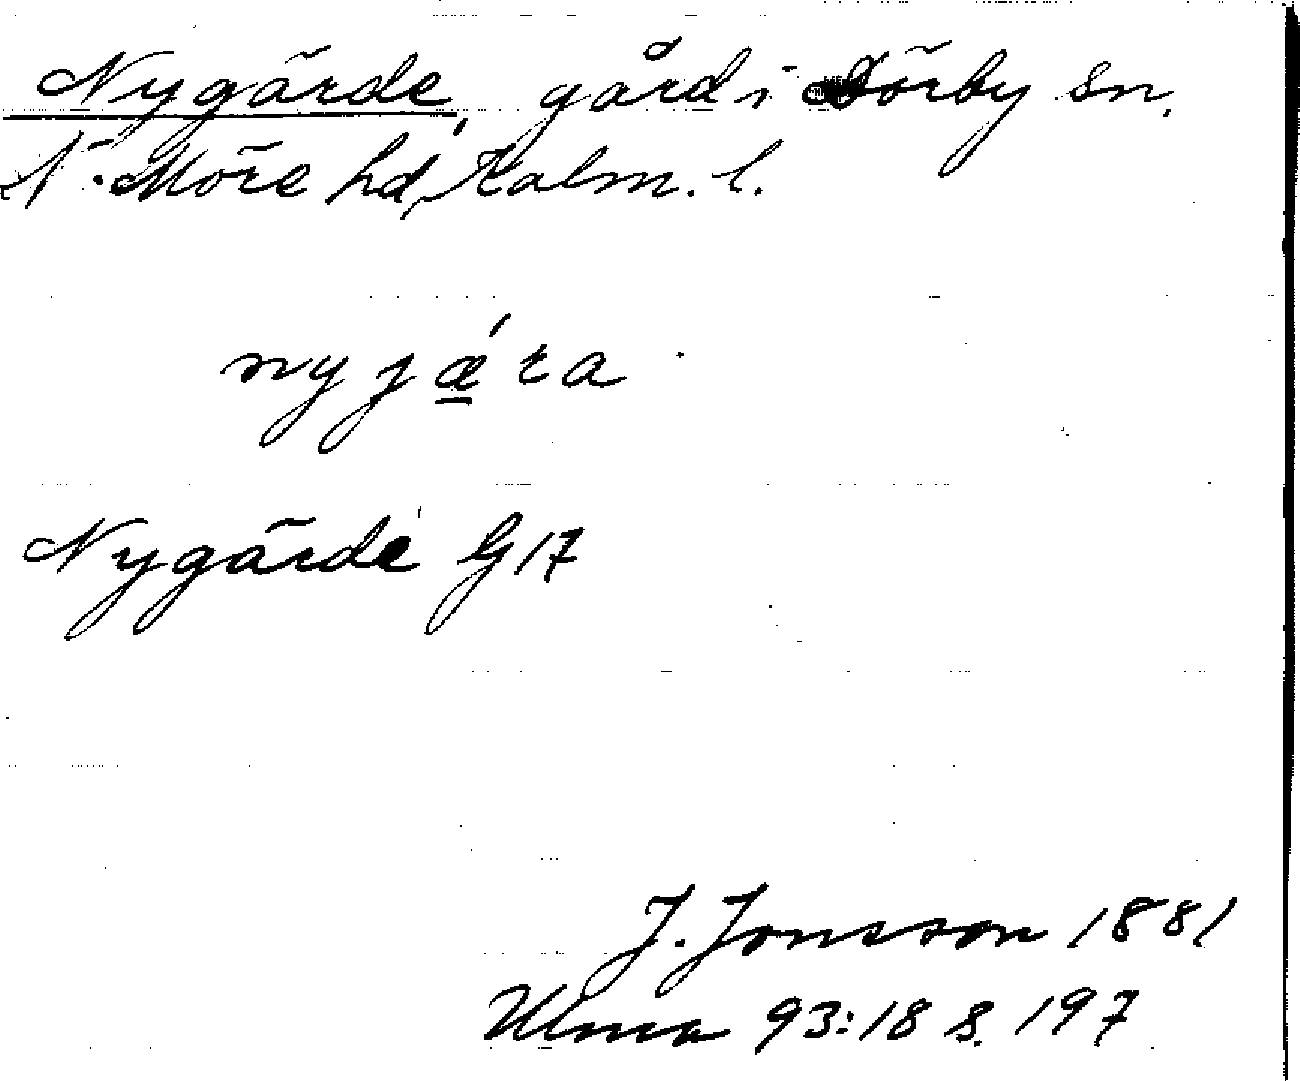 Nygärde, gård i Dörby sn,
N. Möre hd, Kalm. l.
nyjǽ̲ra
Nygärde G 17
J. Jonsson 1881
Ulma 93:18 s. 197